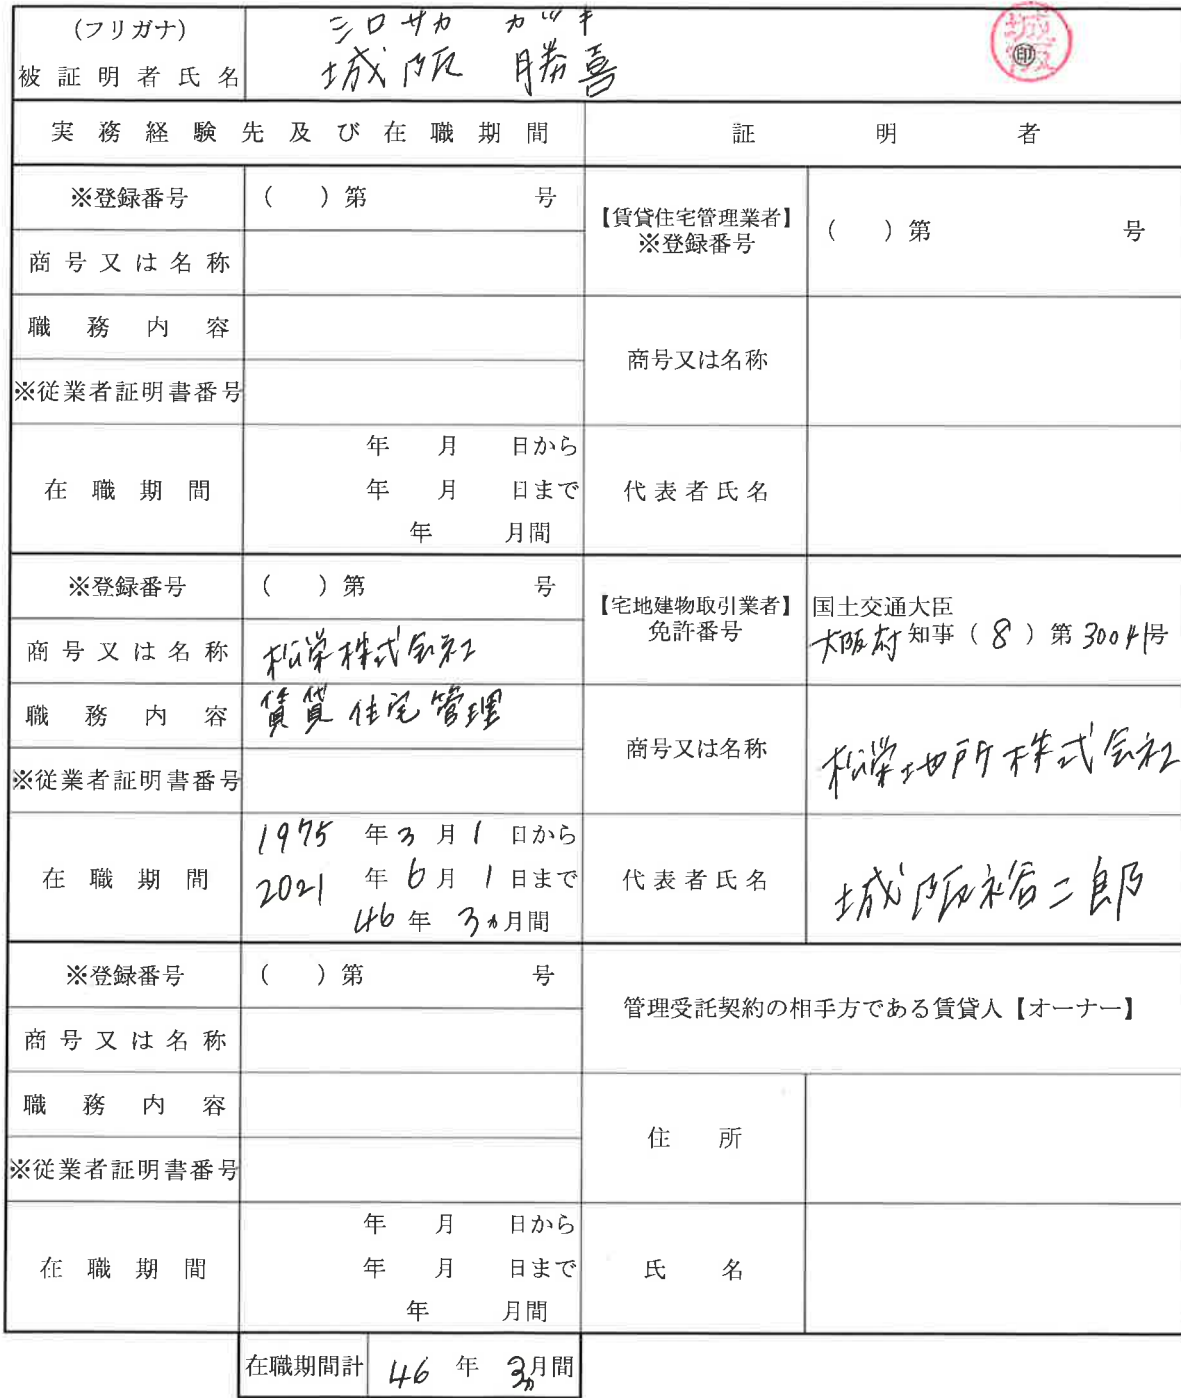 (フリガナ) シロサカ カツキ
被証明者氏名 城阪 勝喜 ㊞
実務経験先及び在職期間 証明者
※登録番号 ( )第 号
商号又は名称
職務内容
※従業者証明書番号
在職期間 年 月 日から
年 月 日まで
年 月間
【賃貸住宅管理業者】
※登録番号 ( )第 号
商号又は名称
代表者氏名
※登録番号 ( )第 号
商号又は名称 松栄株式会社
職務内容 賃貸住宅管理
※従業者証明書番号
在職期間 1975年3月1日から
2021年6月1日まで
46年3ヵ月間
【宅地建物取引業者】 国土交通大臣
免許番号 大阪府知事(8)第30041号
商号又は名称 松栄地所株式会社
代表者氏名 城阪裕二郎
※登録番号 ( )第 号
商号又は名称
職務内容
※従業者証明書番号
在職期間 年 月 日から
年 月 日まで
年 月間
管理受託契約の相手方である賃貸人【オーナー】
住所
氏名
在職期間計 46年3ヵ月間